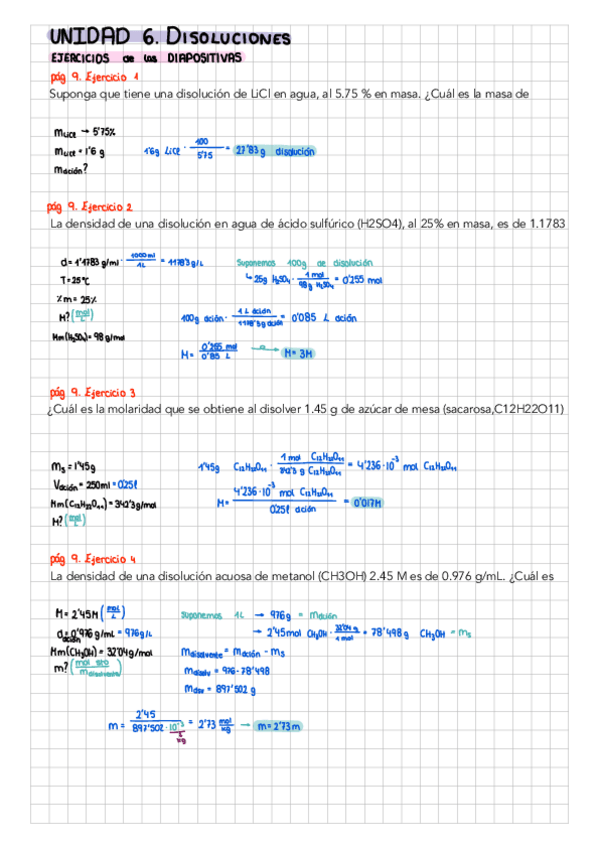 UNIDAD 6. DISOLUCIONES
EJERCICIOS de las DIAPOSITIVAS
pág 9. Ejercicio 1
Suponga que tiene una disolución de LiCl en agua, al 5.75 % en masa. ¿Cuál es la masa de
mLiCl → 5'75%
mLiCl = 1'6 g
mdción?
1'6g LiCl · 100/5'75 = 27'83 g disolución
pág 9. Ejercicio 2
La densidad de una disolución en agua de ácido sulfúrico (H2SO4), al 25% en masa, es de 1.1783
d = 1'1783 g/ml · 1000ml/1L = 1178'3 g/L
T = 25°C
%m = 25%
M? (mol/L)
Mm(H₂SO₄) = 98 g/mol
Suponemos 100g de disolución
↳ 25g H₂SO₄ · 1 mol/98g H₂SO₄ = 0'255 mol
100g dción · 1 L dción/1178'3g dción = 0'085 L dción
M = 0'255 mol/0'85 L → M = 3M
pág 9. Ejercicio 3
¿Cuál es la molaridad que se obtiene al disolver 1.45 g de azúcar de mesa (sacarosa,C12H22O11)
ms = 1'45g
Vdción = 250ml = 0'25l
Mm(C₁₂H₂₂O₁₁) = 342'3g/mol
M? (mol/L)
1'45g C₁₂H₂₂O₁₁ · 1 mol C₁₂H₂₂O₁₁/342'3 g C₁₂H₂₂O₁₁ = 4'236·10⁻³ mol C₁₂H₂₂O₁₁
M = 4'236·10⁻³ mol C₁₂H₂₂O₁₁/0'25l dción = 0'017M
pág 9. Ejercicio 4
La densidad de una disolución acuosa de metanol (CH3OH) 2.45 M es de 0.976 g/mL. ¿Cuál es
M = 2'45M (mol/L)
ddción = 0'976 g/mL = 976g/L
Mm(CH₃OH) = 32'04g/mol
m? (mol sto/mdisolvente)
Suponemos 1L → 976g = mdción
→ 2'45mol CH₃OH · 32'04 g/1 mol = 78'498g CH₃OH = ms
mdisolvente = mdción - ms
mdisolv = 976 - 78'498
mdisv = 897'502 g
m = 2'45/897'502 · 10⁻³ = 2'73 mol/kg → m = 2'73m
kg